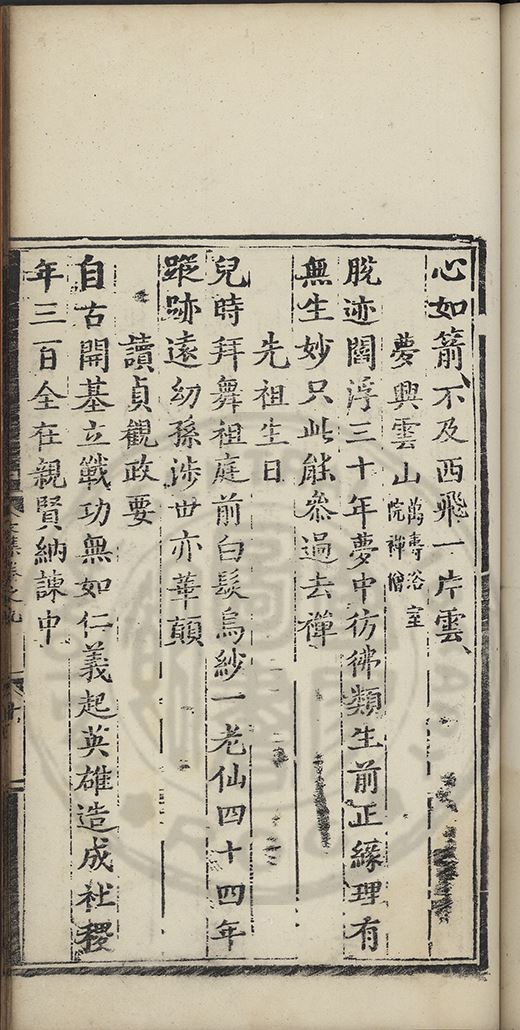 心如箭不及西飛一片雲
夢興雲山萬壽浴室院禪僧
脫迹閻浮三十年夢中彷彿類生前正緣理有
無生妙只此能參過去禪
先祖生日
兒時拜舞祖庭前白髮烏紗一老仙四十四年
蹤跡遠幼孫涉世亦華顛
讀貞觀政要
自古開基立戰功無如仁義起英雄造成社稷
年三百全在親賢納諫中